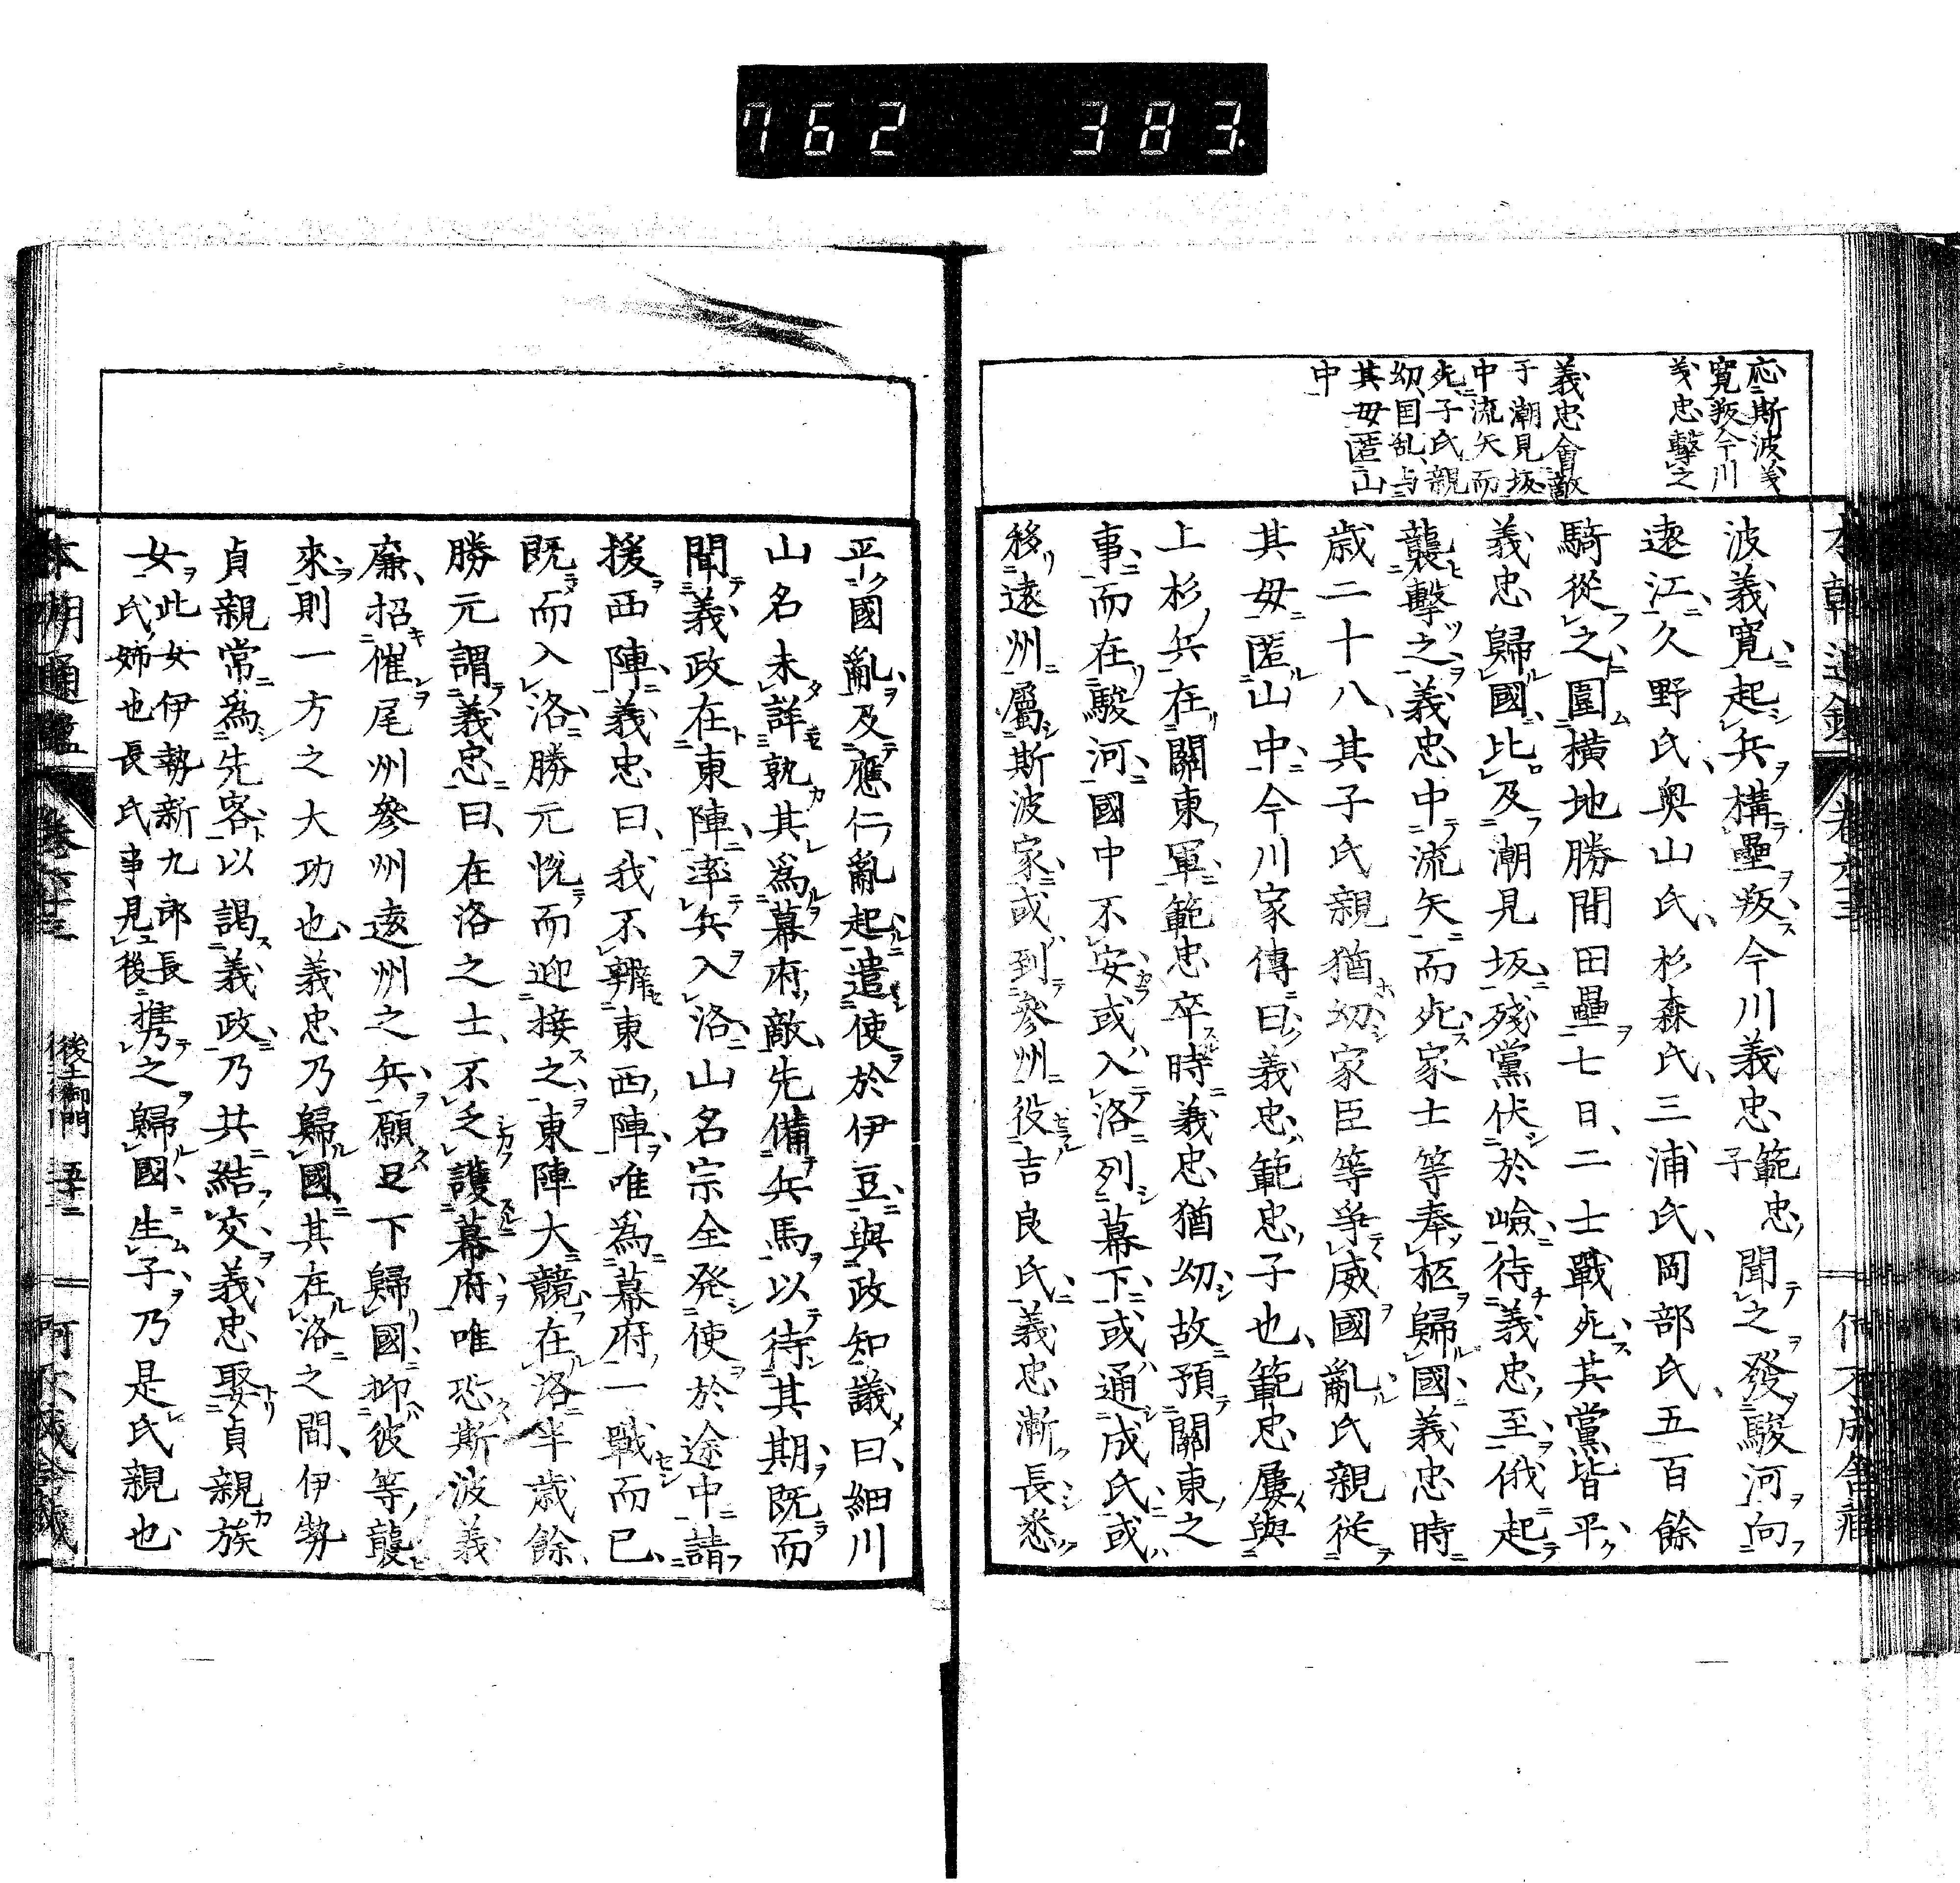 762 383
応斯波義
寛叛今川
義忠撃之
義忠會敵
于潮見坂
中流矢而
死子氏親
幼国乱与
其母匿山
中
波義寛起兵構壘叛今川義忠範忠子聞之發駿河向
遠江久野氏奥山氏杉森氏三浦氏岡部氏五百餘
騎從之圍横地勝間田壘七日二士戰死其黨皆平
義忠歸國比及潮見坂殘黨伏於嶮待義忠至俄起
襲擊之義忠中流矢而死家士等奉柩歸國義忠時
歳二十八其子氏親猶幼家臣等爭威國亂氏親從
其母匿山中今川家傳曰義忠範忠子也範忠屢與
上杉兵在關東軍範忠卒時義忠猶幼故預關東之
事而在駿河國中不安或入洛列幕下或通成氏或
移遠州屬斯波家或到參州役吉良氏義忠漸長悉
平國亂及應仁亂起遣使於伊豆與政知議曰細川
山名未詳孰其爲幕府敵先備兵馬以待其期既而
聞義政在東陣率兵入洛山名宗全発使於途中請
援西陣義忠曰我不辨東西陣唯爲幕府一戰而已
既而入洛勝元悦而迎接之東陣大競在洛半歳餘
勝元謂義忠曰在洛之士不乏護幕府唯恐斯波義
廉招催尾州參州遠州之兵願足下歸國抑彼等襲
來則一方之大功也義忠乃歸國其在洛之間伊勢
貞親常爲先客以謁義政乃共結交義忠娶貞親族
女此女伊勢新九郎長氏姉也長氏事見後携之歸國生子乃是氏親也
本朝通鑑 卷六十三 後土御門 五十二